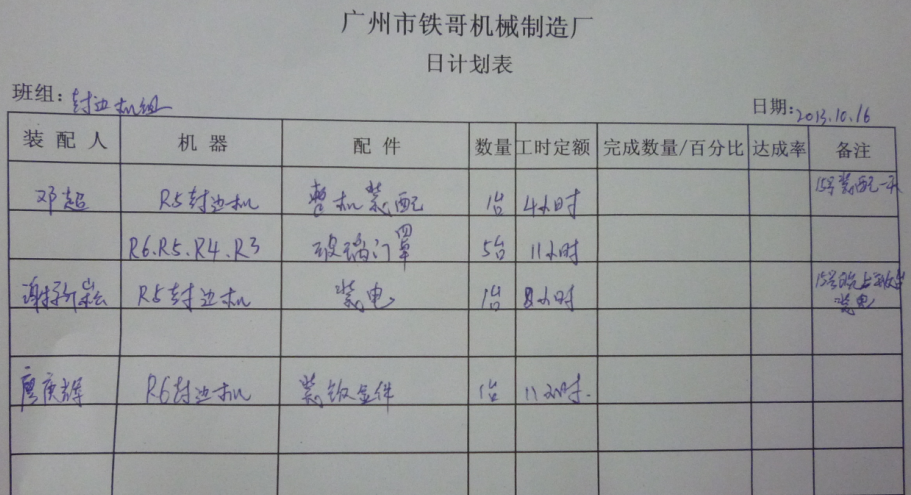 广州市铁哥机械制造厂
日计划表
班组：封边机组
日期：2013.10.16
装配人 机器 配件 数量 工时定额 完成数量/百分比 达成率 备注
邓超 R5封边机 整机装配 1台 4小时 15号装配一天
R6.R5.R4.R3 玻璃门罩 5台 11小时
谢 R5封边机 装电 1台 8小时 15号晚上 装电
廖庆辉 R6封边机 装钣金件 1台 11小时.